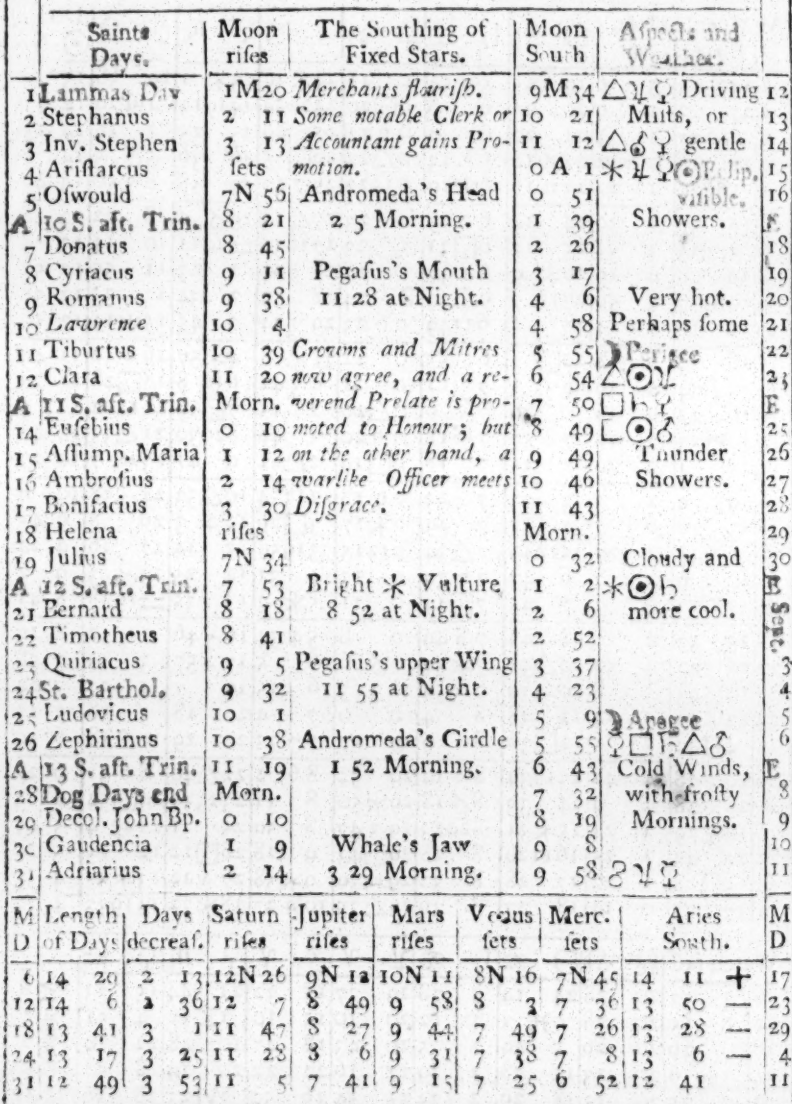 Saints Days. | Moon rises | The Southing of Fixed Stars. | Moon South | Aspects and Weather.
1 Lammas Day | 1M20 | Merchants flouriſh. | 9M34 | △♃☿ Driving | 12
2 Stephanus | 2 11 | Some notable Clerk or | 10 21 | Miſts, or | 13
3 Inv. Stephen | 3 13 | Accountant gains Pro- | 11 12 | △♂☿ gentle | 14
4 Ariſtarcus | ſets | motion. | 0 A 1 | ✶♃♀☉Eclip. | 15
5 Oſwould | 7N 56 | Andromeda's Head | 0 51 | viſible. | 16
A 10 S. aft. Trin. | 8 21 | 2 5 Morning. | 1 39 | Showers. | E
7 Donatus | 8 45 | | 2 26 | | 18
8 Cyriacus | 9 11 | Pegaſus's Mouth | 3 17 | | 19
9 Romanus | 9 38 | 11 28 at Night. | 4 6 | Very hot. | 20
10 Lawrence | 10 4 | | 4 58 | Perhaps ſome | 21
11 Tiburtus | 10 39 | Crowns and Mitres | 5 55 | ☽Perigee | 22
12 Clara | 11 20 | now agree, and a re- | 6 54 | △☉♃ | 23
A 11 S. aft. Trin. | Morn. | verend Prelate is pro- | 7 50 | □♄☿ | E
14 Euſebius | 0 10 | moted to Honour ; but | 8 49 | □☉♂ | 25
15 Aſſump. Maria | 1 12 | on the other hand, a | 9 49 | Thunder | 26
16 Ambroſius | 2 14 | warlike Officer meets | 10 46 | Showers. | 27
17 Bonifacius | 3 30 | Diſgrace. | 11 43 | | 28
18 Helena | riſes | | Morn. | | 29
19 Julius | 7N 34 | | 0 32 | Cloudy and | 30
A 12 S. aft. Trin. | 7 53 | Bright ✶ Vulture | 1 2 | ✶☉♄ | E
21 Bernard | 8 18 | 8 52 at Night. | 2 6 | more cool. | Sept.
22 Timotheus | 8 41 | | 2 52
23 Quiriacus | 9 5 | Pegaſus's upper Wing | 3 37 | | 3
24 St. Barthol. | 9 32 | 11 55 at Night. | 4 23 | | 4
25 Ludovicus | 10 1 | | 5 9 | ☽Apogee | 5
26 Zephirinus | 10 38 | Andromeda's Girdle | 5 55 | ☿□♄△♂ | 6
A 13 S. aft. Trin. | 11 19 | 1 52 Morning. | 6 43 | Cold Winds, | E
28 Dog Days end | Morn. | | 7 32 | with froſty | 8
29 Decol. John Bp. | 0 10 | | 8 19 | Mornings. | 9
30 Gaudencia | 1 9 | Whale's Jaw | 9 8 | | 10
31 Adriarius | 2 14 | 3 29 Morning. | 9 58 | ☍♃☿ | 11
M D | Length of Days | Days decreaſ. | Saturn riſes | Jupiter riſes | Mars riſes | Venus ſets | Merc. ſets | Aries South. | M D
6 | 14 29 | 2 13 | 12N 26 | 9N 12 | 10N 11 | 8N 16 | 7N 45 | 14 11 + | 17
12 | 14 6 | 2 36 | 12 7 | 8 49 | 9 58 | 8 3 | 7 36 | 13 50 — | 23
18 | 13 41 | 3 1 | 11 47 | 8 27 | 9 44 | 7 49 | 7 26 | 13 28 — | 29
24 | 13 17 | 3 25 | 11 28 | 8 6 | 9 31 | 7 38 | 7 8 | 13 6 — | 4
31 | 12 49 | 3 53 | 11 5 | 7 41 | 9 15 | 7 25 | 6 52 | 12 41 | 11